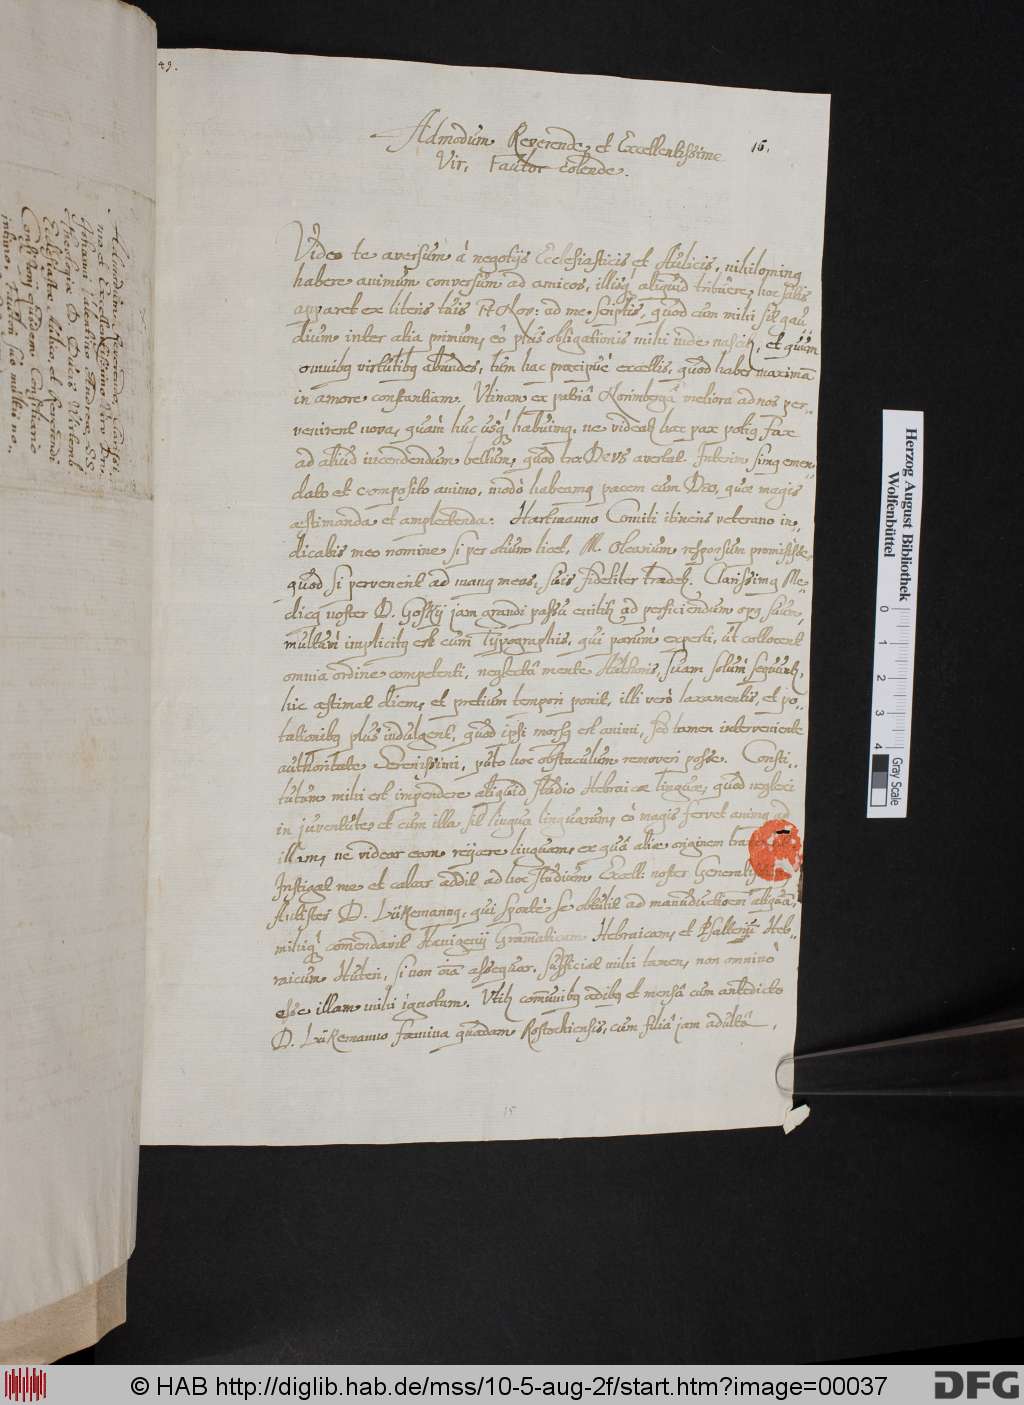 49.
15.
Admodum Reverende, et Excellentissime
Vir, Fautor colende.
Video te aversum á negotijs Ecclesiasticis et Aulicis, nihilominq
habere animum conversum ad amicos, illisq aliquid tribuere, hoc satis
apparet ex literis tuis Nov: ad me scriptis, quod cum mihi sit gau
dium inter alia primum, eô plus obligationis mihi inde nascitr, et quum
omnibq virtutibq abundes, tum hac praecipuè excellis, quod habes maximã
in amore constantiam. Utinam ex patriâ Norimbergâ meliora ad nos per-
venirent nova, quàm huc usq habuimq, ne videatr hac pax potiq, fax
ad aliud incendendum bellum, quod tn DEVS avertat. Interim simq emen-
dato et composito animo, modò habeamq pacem cum Deo, quae magis
aestimanda et amplectenda. Hartmanno Comiti itineris veterano in-
dicabis meo nomine si per otium licet, M. Olearium responsum promisisse,
quod si pervenerit ad manq meas, suis fideliter tradetr. Clarissimq Me-
dicq noster D. Gosky jam grandi passu enititr ad perficiendum opq suum,
multum implicitq est cum Typographis, qui parum experti, ut collocent
omnia ordine competenti, neglectâ mente Authoris, suam solum sequuntr,
hic aestimat diem, et pretium tempori ponit, illi verò laxamentis, et po-
tationibq plus indulgent, quod ipsi morsq est animi, sed tamen interveniente
authoritate Serenissimi, puto hoc obstaculum removeri posse. Consti-
tutum mihi est impendere aliquid studio Hebraicae linguae, quod neglexi
in juventute, et cum illa sit lingua linguarum, eò magis fervet animq ad
illam, ne videar eam reijcere linguam, ex quâ aliae originem
Instigat me et calcar addit ad hoc studium Excell: noster Generalis
Antistes D. Lükemannq, qui spontè se obtulit ad manuductionem aliquã,
mihiq comendavit Havigenij Gramaticam Hebraicam, et Psalterium Heb-
raicum Hutteri, si non oia assequar, sufficiat mihi tamen, non omninò
esse illam mihi ignotam. Utitr comunibq aedibq et mensâ cum antedicto
D. Lükemanno foemina quaedam Rostochiensis, cum filiâ jam adultâ,
15
Herzog August Bibliothek
Wolfenbüttel
0 1 2 3 4
Gray Scale
© HAB http://diglib.hab.de/mss/10-5-aug-2f/start.htm?image=00037
DFG